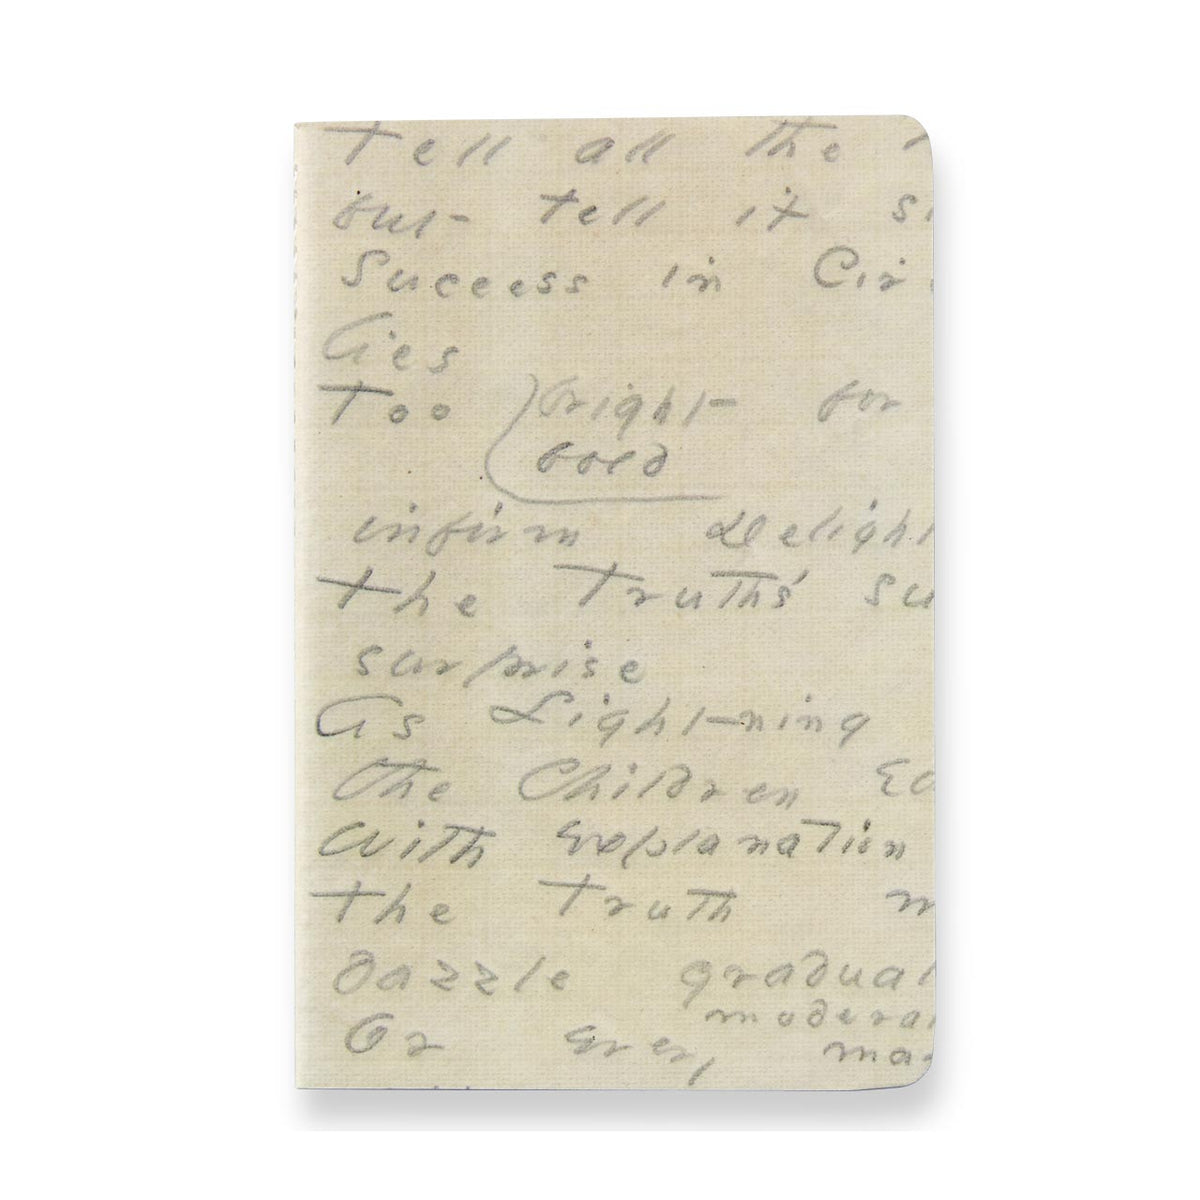 Tell all the
but tell it sl
Success in Cir
lies
Too (bright for
bold
infirm Delight
the Truth's su
surprise
As Lightning
the Children Ea
With explanation
the Truth m
dazzle gradual
moderat
Or every ma